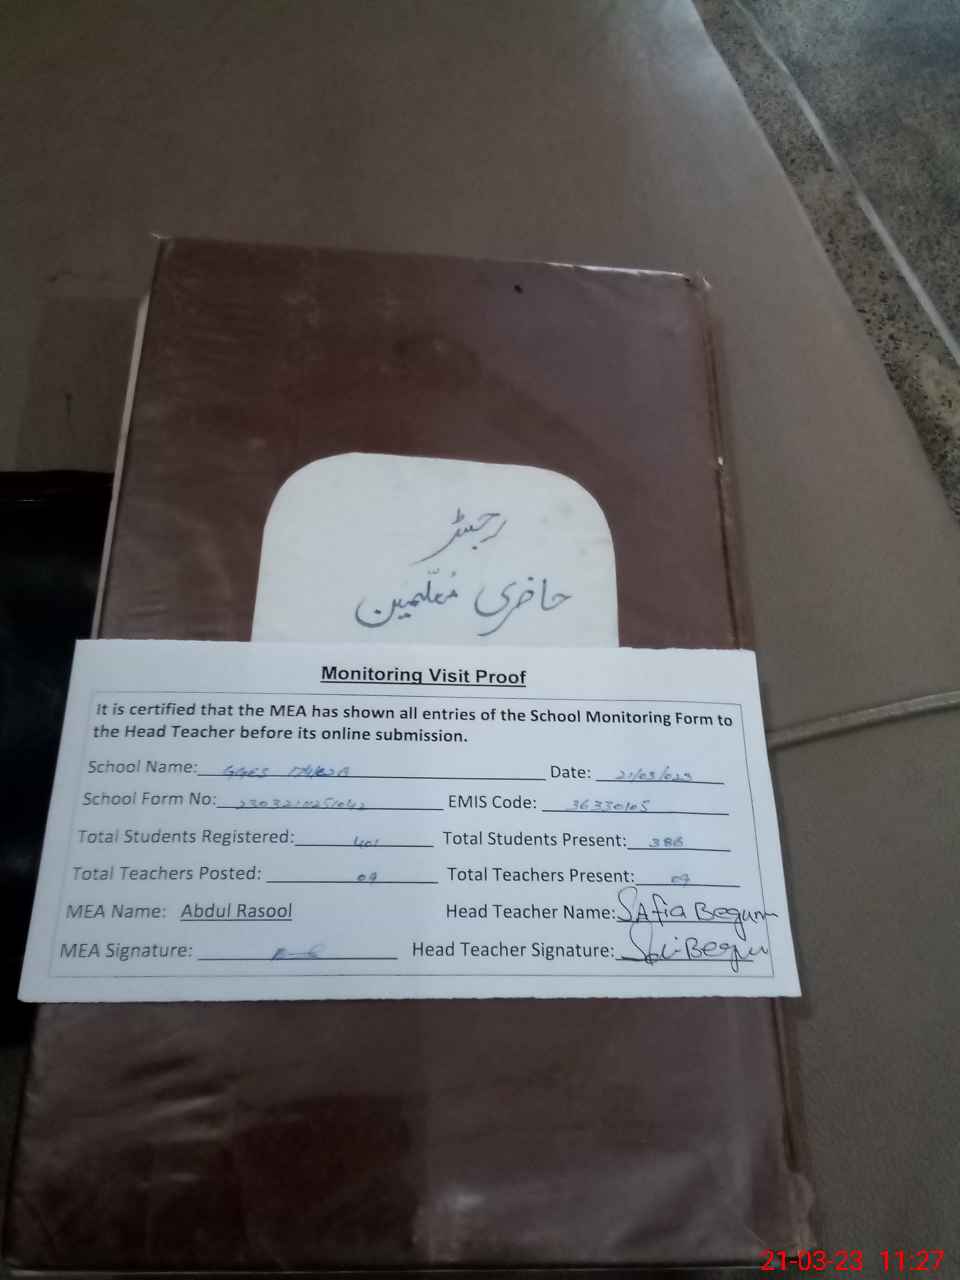 رجسٹر
حاضری مُعلّمین
Monitoring Visit Proof
It is certified that the MEA has shown all entries of the School Monitoring Form to
the Head Teacher before its online submission.
School Name: GGES Date: 21/03/023
School Form No: EMIS Code: 36330105
Total Students Registered: 401 Total Students Present: 386
Total Teachers Posted: 09 Total Teachers Present: 09
MEA Name: Abdul Rasool Head Teacher Name: SAfia Begum
MEA Signature: Head Teacher Signature:
21-03-23 11:27